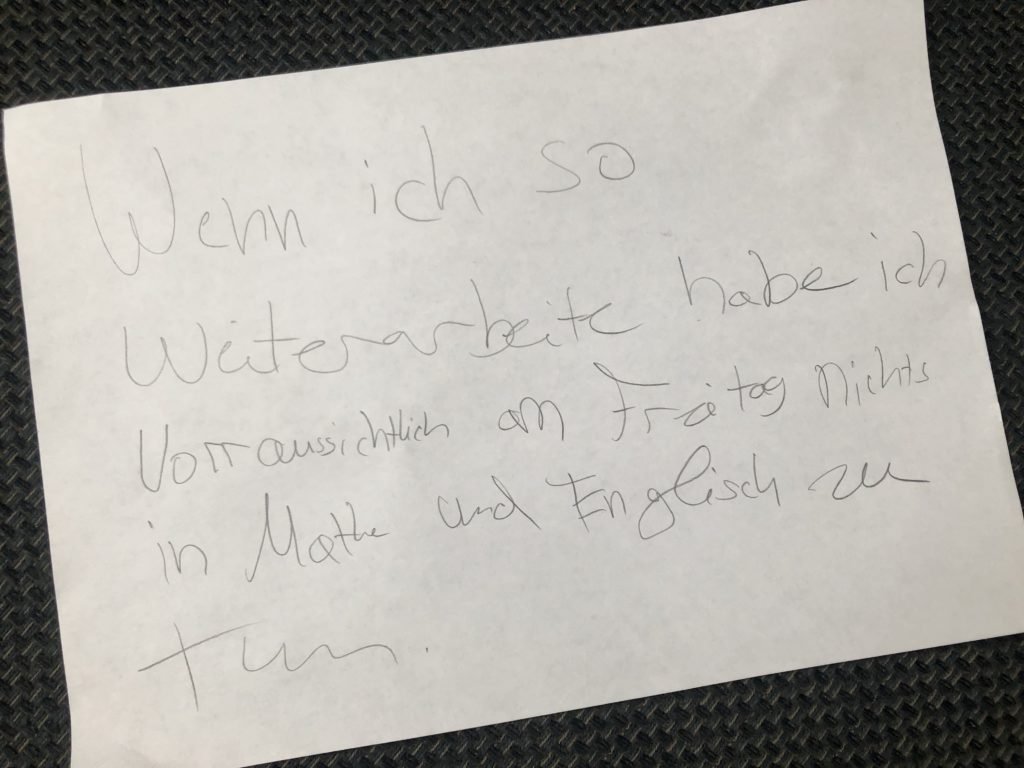 Wenn ich so
Weiterarbeite habe ich
Vorraussichtlich am Freitag nichts
in Mathe und Englisch zu
tun.